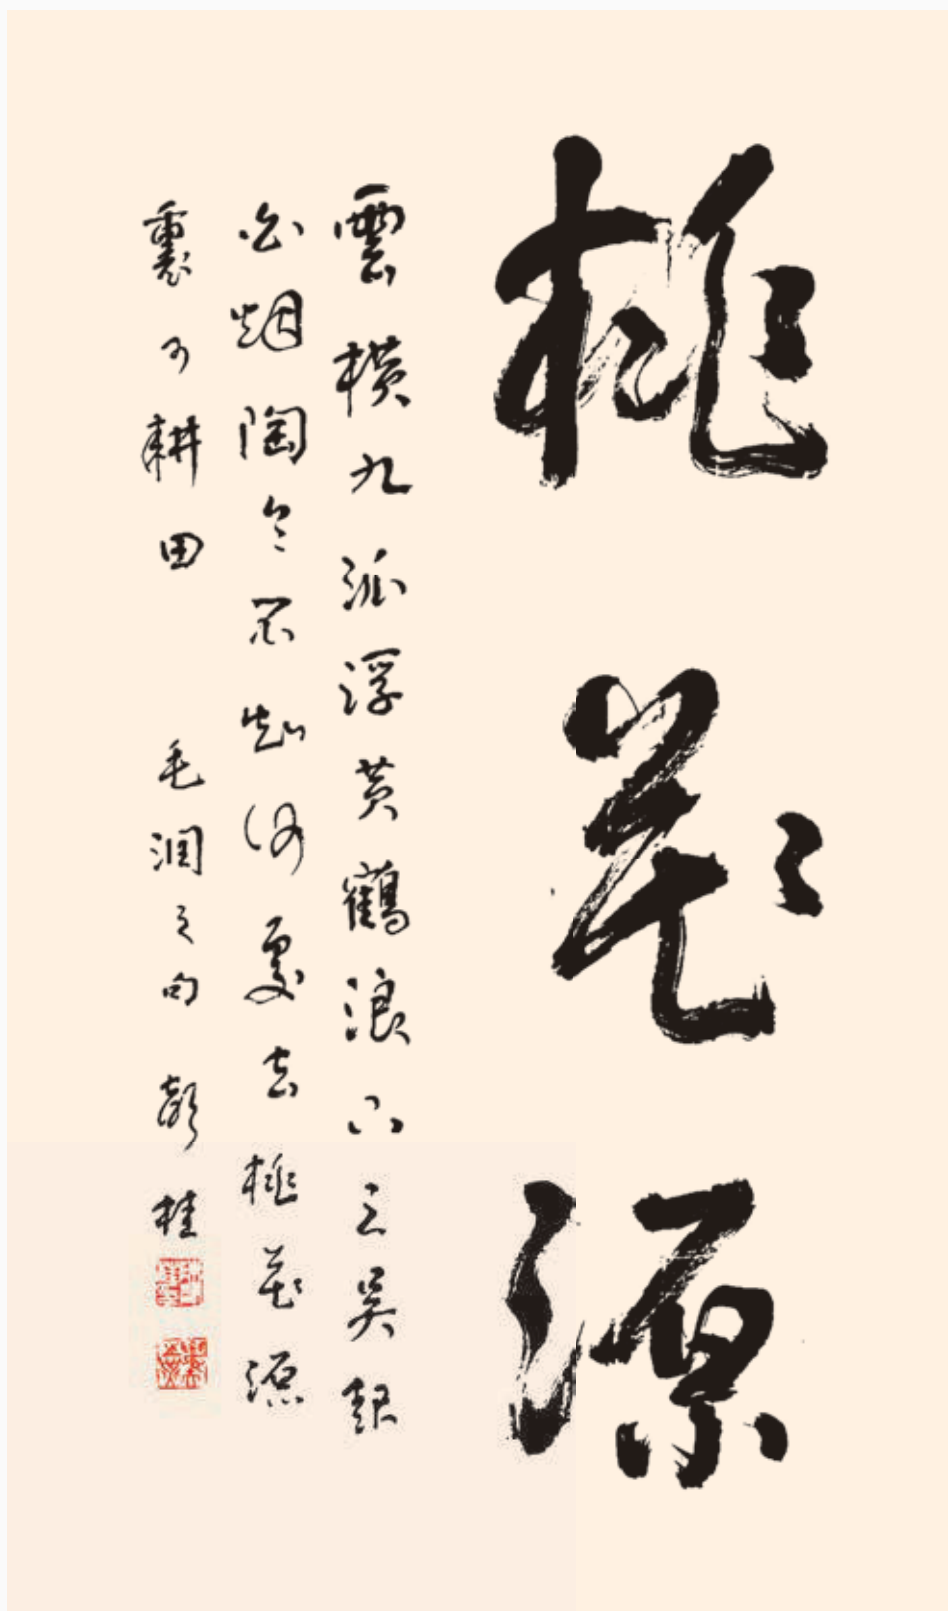 桃花源
雲横九派浮黄鶴浪下三吴起
白烟陶令不知何處去桃花源
裏可耕田 毛润之句 彭桂